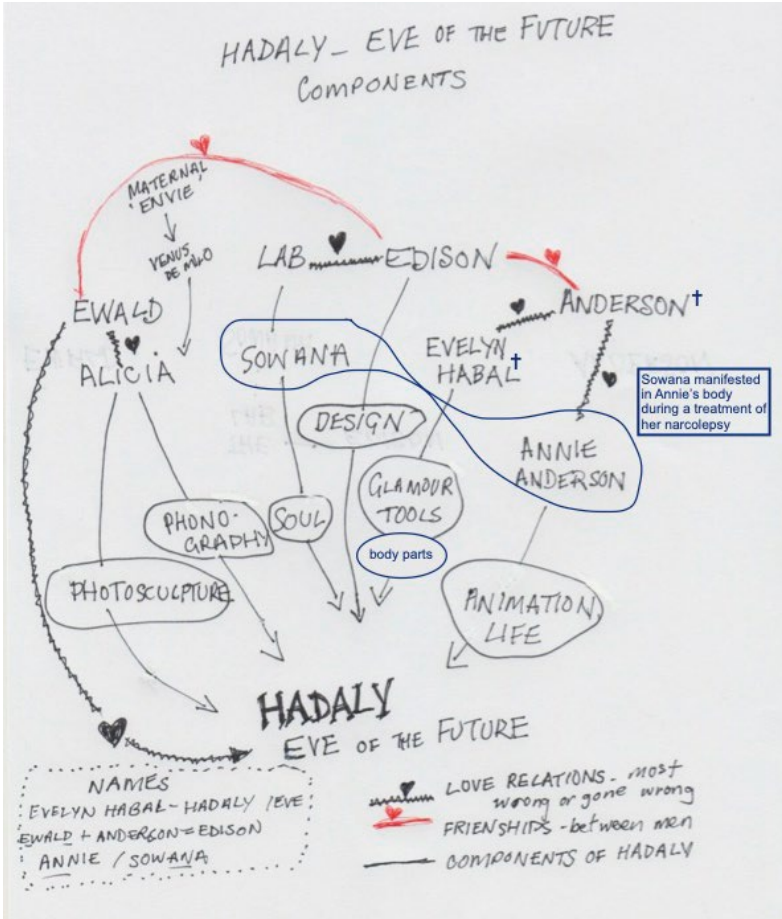 HADALY_ EVE OF THE FUTURE
COMPONENTS
MATERNAL
'ENVIE'
VENUS
DE MILO
LAB
EDISON
EWALD
ANDERSON†
ALICIA
SOWANA
EVELYN
HABAL†
Sowana manifested
in Annie's body
during a treatment of
her narcolepsy
DESIGN
ANNIE
ANDERSON
GLAMOUR
TOOLS
PHONO-
GRAPHY
SOUL
body parts
PHOTOSCULPTURE
ANIMATION
LIFE
HADALY
EVE OF THE FUTURE
NAMES
EVELYN HABAL-HADALY/EVE
EWALD + ANDERSON = EDISON
ANNIE / SOWANA
LOVE RELATIONS - most
wrong or gone wrong
FRIENSHIPS - between men
COMPONENTS OF HADALY